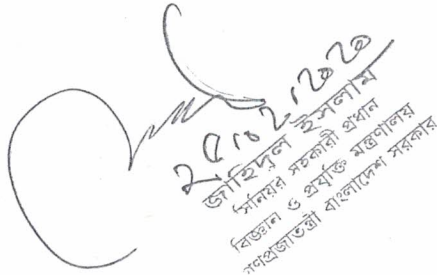 জাহিদুল ইসলাম
সিনিয়র সহকারী প্রধান
বিজ্ঞান ও প্রযুক্তি মন্ত্রণালয়
গণপ্রজাতন্ত্রী বাংলাদেশ সরকার